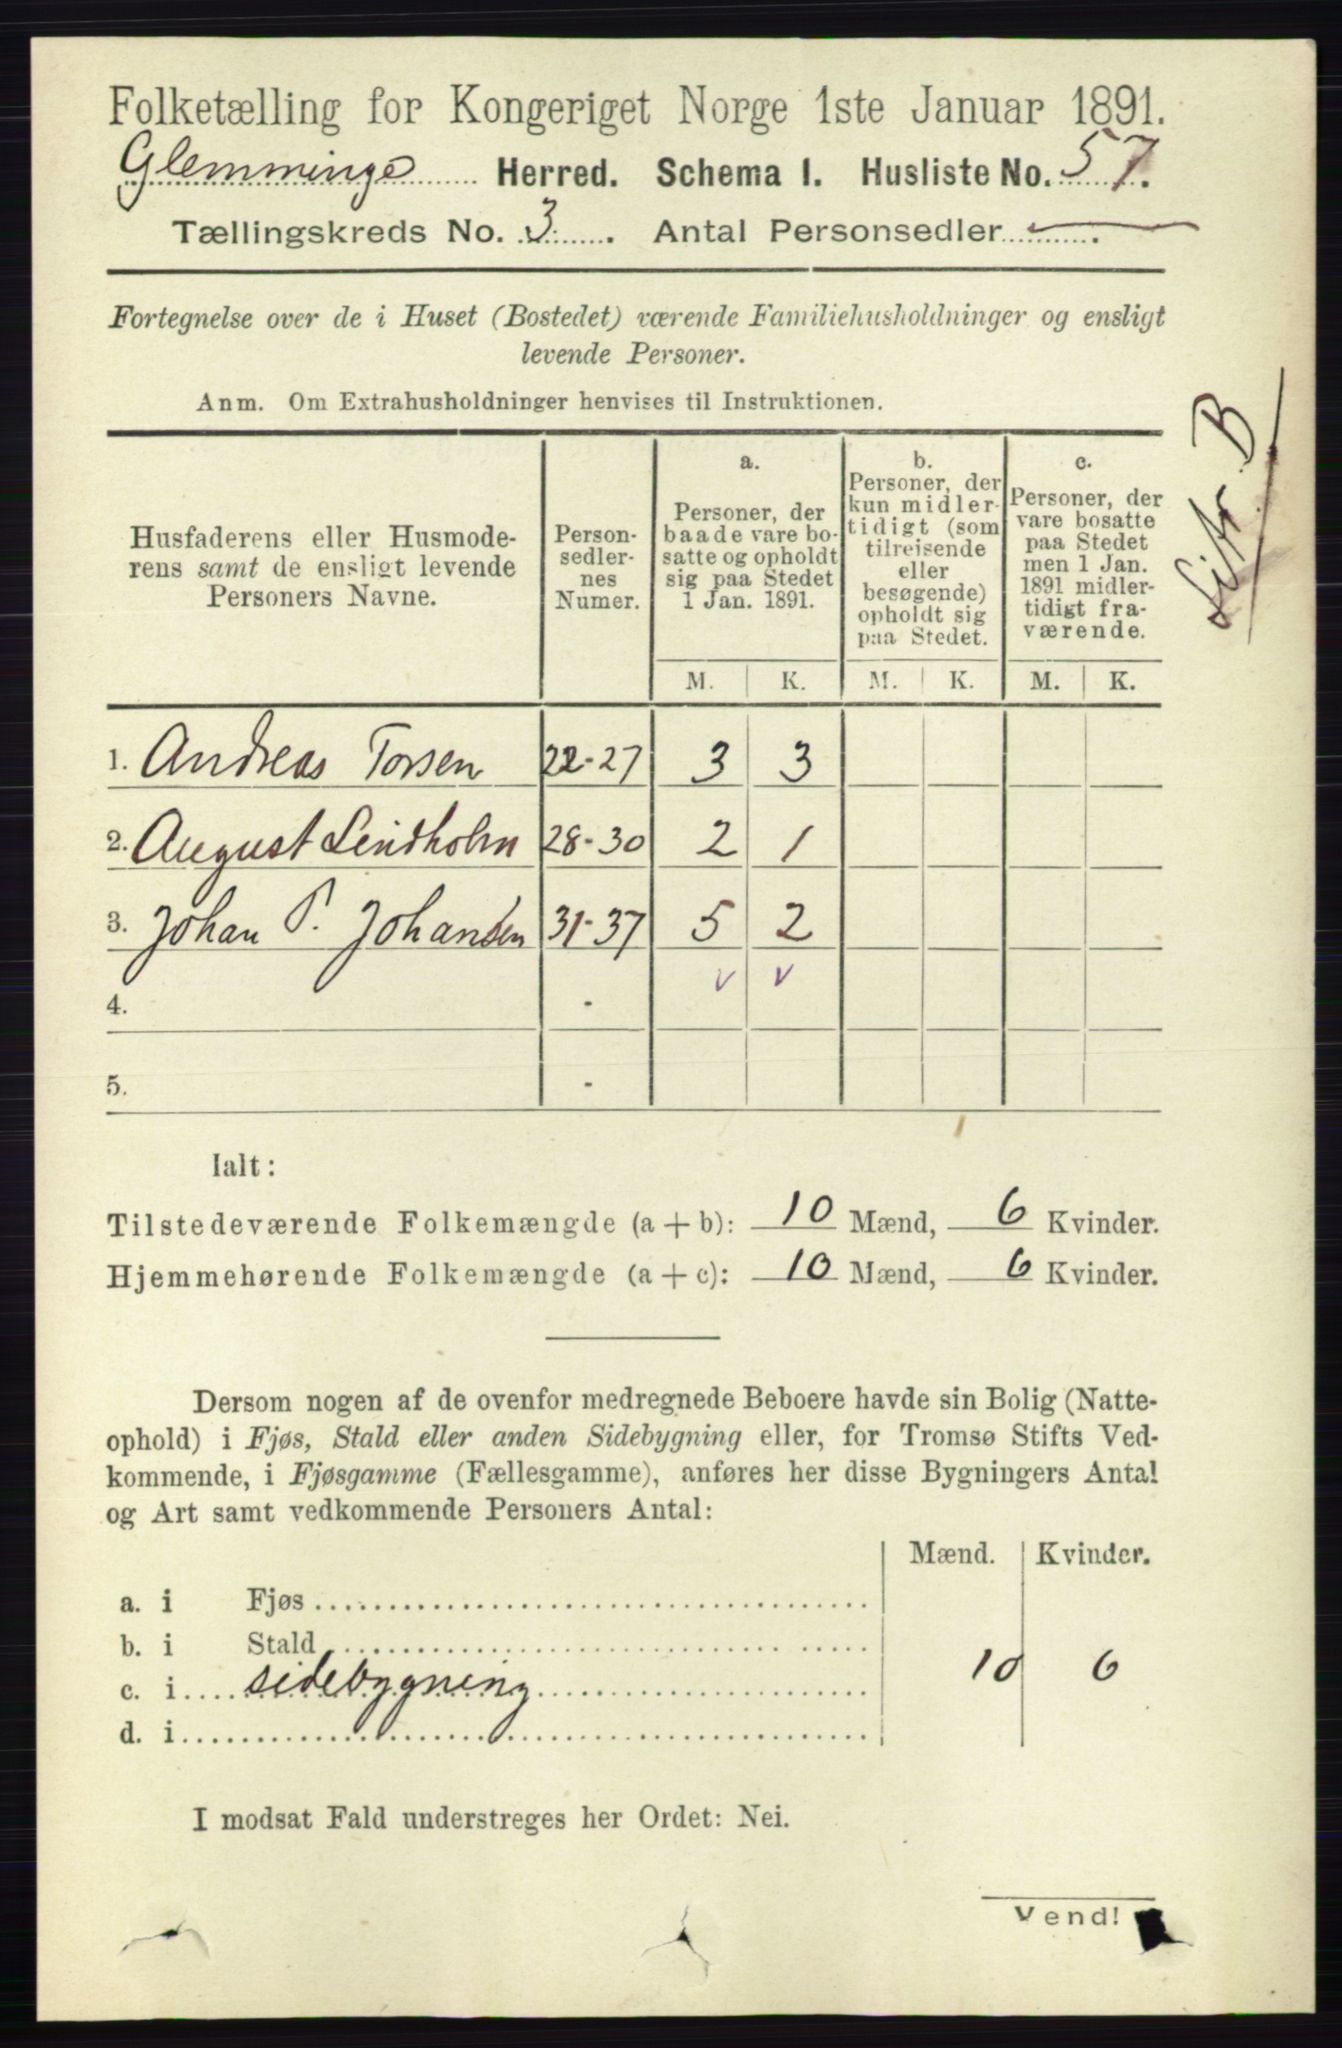 Folketælling for Kongeriget Norge 1ste Januar 1891.
Glemminge Herred. Schema I. Husliste No. 57.
Tællingskreds No. 3. Antal Personsedler
Fortegnelse over de i Huset (Bostedet) værende Familiehusholdninger og ensligt
levende Personer.
Anm. Om Extrahusholdninger henvises til Instruktionen.
Litr. B
Husfaderens eller Husmode-
rens samt de ensligt levende
Personers Navne.
Person-
sedler-
nes
Numer.
a.
Personer, der
baade vare bo-
satte og opholdt
sig paa Stedet
1 Jan. 1891.
b.
Personer, der
kun midler-
tidigt (som
tilreisende
eller
besøgende)
opholdt sig
paa Stedet.
c.
Personer, der
vare bosatte
paa Stedet
men 1 Jan.
1891 midler-
tidigt fra-
værende.
M. K. M. K. M. K.
1. Andreas Torsen 22-27 3 3
2. August Lindholm 28-30 2 1
3. Johan P. Johansen 31-37 5 2
v v
4. -
5. -
Ialt:
Tilstedeværende Folkemængde (a + b): 10 Mænd, 6 Kvinder.
Hjemmehørende Folkemængde (a + c): 10 Mænd, 6 Kvinder.
Dersom nogen af de ovenfor medregnede Beboere havde sin Bolig (Natte-
ophold) i Fjøs, Stald eller anden Sidebygning eller, for Tromsø Stifts Ved-
kommende, i Fjøsgamme (Fællesgamme), anføres her disse Bygningers Antal
og Art samt vedkommende Personers Antal:
Mænd. Kvinder.
a. i Fjøs
b. i Stald
c. i sidebygning 10 6
d. i
I modsat Fald understreges her Ordet: Nei.
Vend!